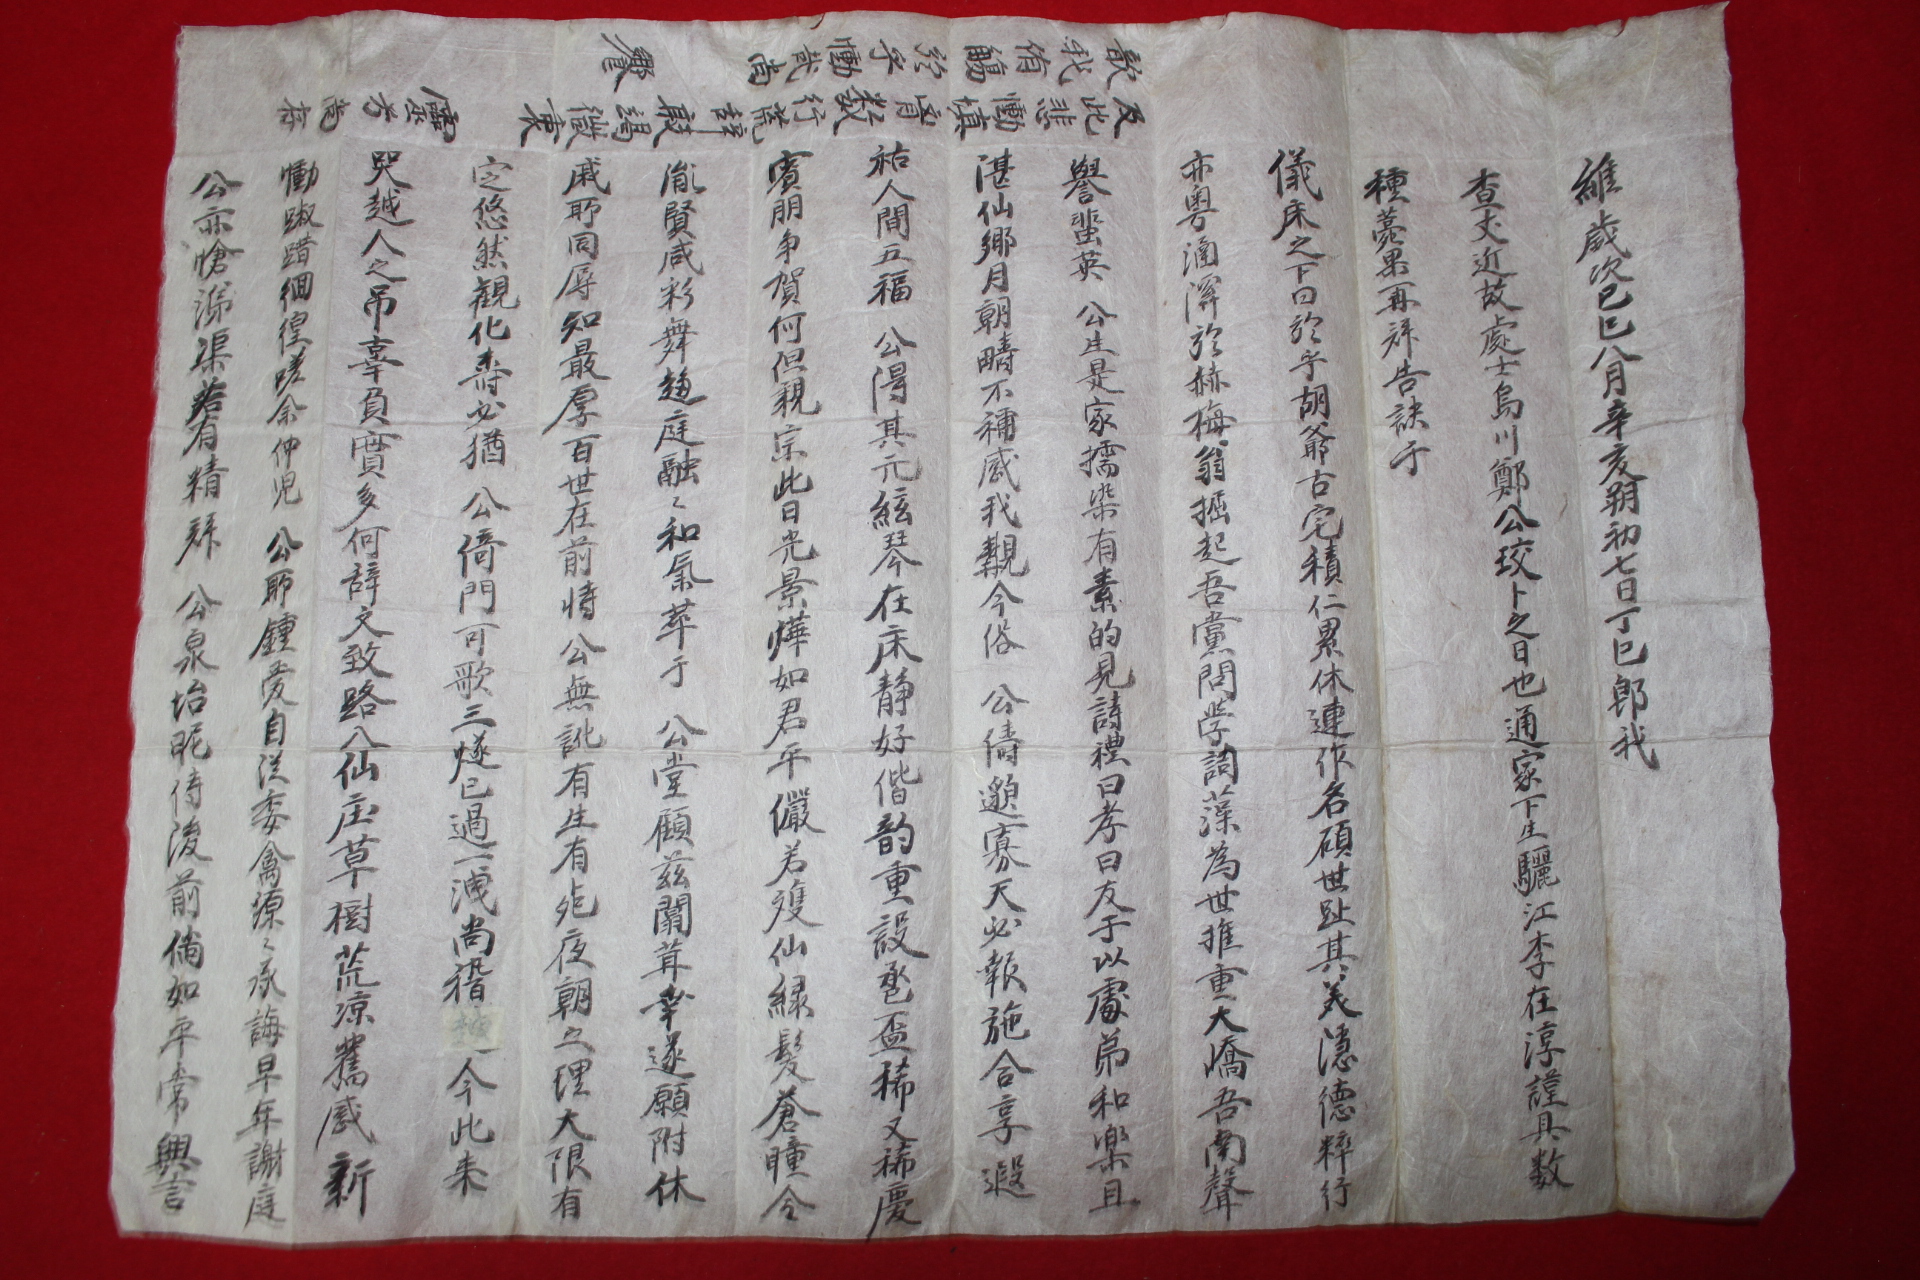 維歲次己巳八月辛亥朔初七日丁巳郎我
査丈近故處士烏川鄭公玟卜之日也通家下生驪江李在淳謹具数
種薧果再拜告訣于
儀床之下曰於乎胡爺古宅積仁累休連作名碩世趾其美隱德粹行
亦粤滴深於赫梅翁掘起吾黨問学詞藻為世推重大嶠吾南聲
譽蜚英 公生是家擩染有素的見詩禮曰孝曰友于以處弟和楽且
湛仙鄉月朝疇不補感我覯今俗 公儔邈寡天必報施合享遐
祜人間五福 公得其元絃琴在床静好偕韵重設巹盃稀又稀慶
賓朋争賀何但親宗此日光景燁如君平儼若㕠仙緑髮蒼瞳令
胤賢咸彩舞趨庭融々和氣萃于 公堂顧茲闒茸幸遂願附休
戚耶同辱知最厚百世在前恃公無訛有生有死夜朝之理大限有
定悠然觀化壽必猶 公倚門可歌三燧已過一洩尚稽 今此来
哭越人之吊辜負實多何辞文致路入仙庄草樹荒凉舊感新
慟踧踖徊徨嗟余仲児 公耶鍾愛自従委禽源々承誨早年謝庭
公亦愴涕渠若有精拜 公泉坮昵侍後前備如平常興言
及此悲慟填膺数行荒辞敢竭微衷
靈 尚
歆我侑觴於乎慟哉尚
饗